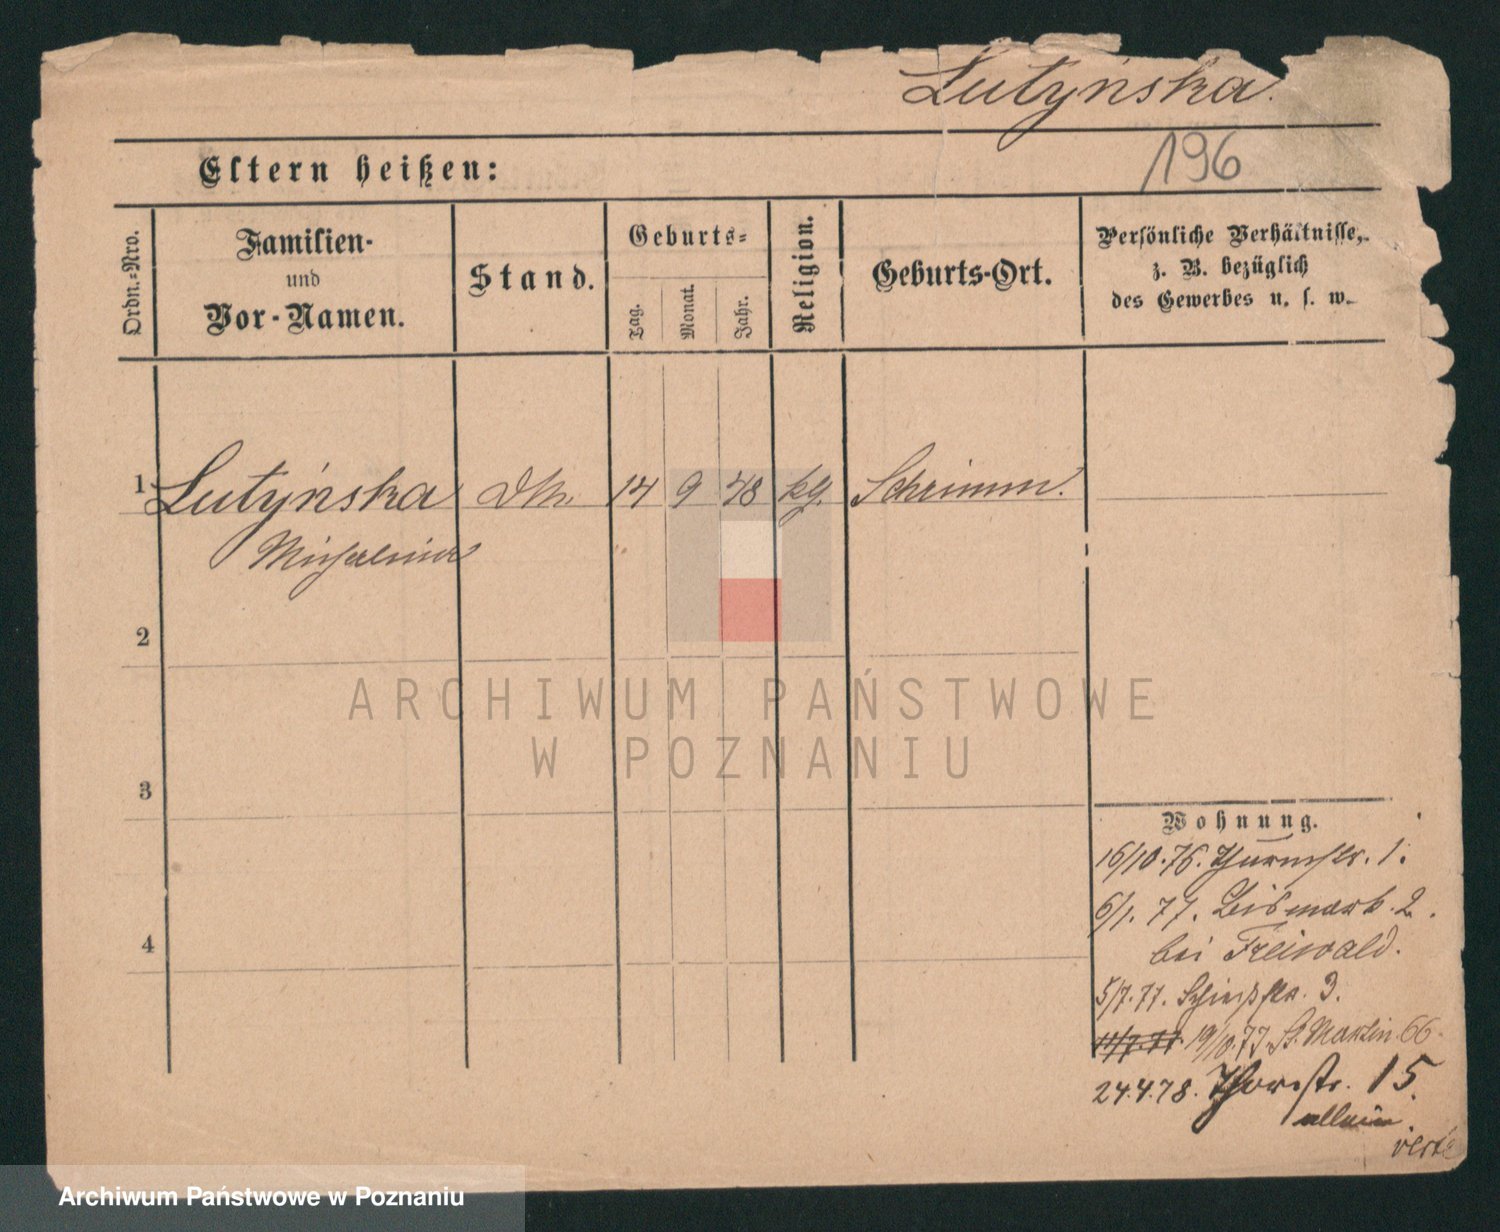 Lutyńska.
196
Eltern heißen:
Ordn.=Nro.
Familien-
und
Vor-Namen.
Stand.
Geburts=
Tag.
Monat.
Jahr.
Religion.
Geburts-Ort.
Persönliche Verhältnisse,
z. B. bezüglich
des Gewerbes u. s. w.
1 Lutyńska 14 9 48 kg. Schrimm.
2
3
4
ARCHIWUM PAŃSTWOWE
W POZNANIU
Wohnung.
16/10.76. Thurmstr. 1.
6/1. 77. Bismark. 2.
bei Freiwald.
5/7.77. 3.
19/10.77 St. Martin 66
24.4.78. 15.
allein
Archiwum Państwowe w Poznaniu